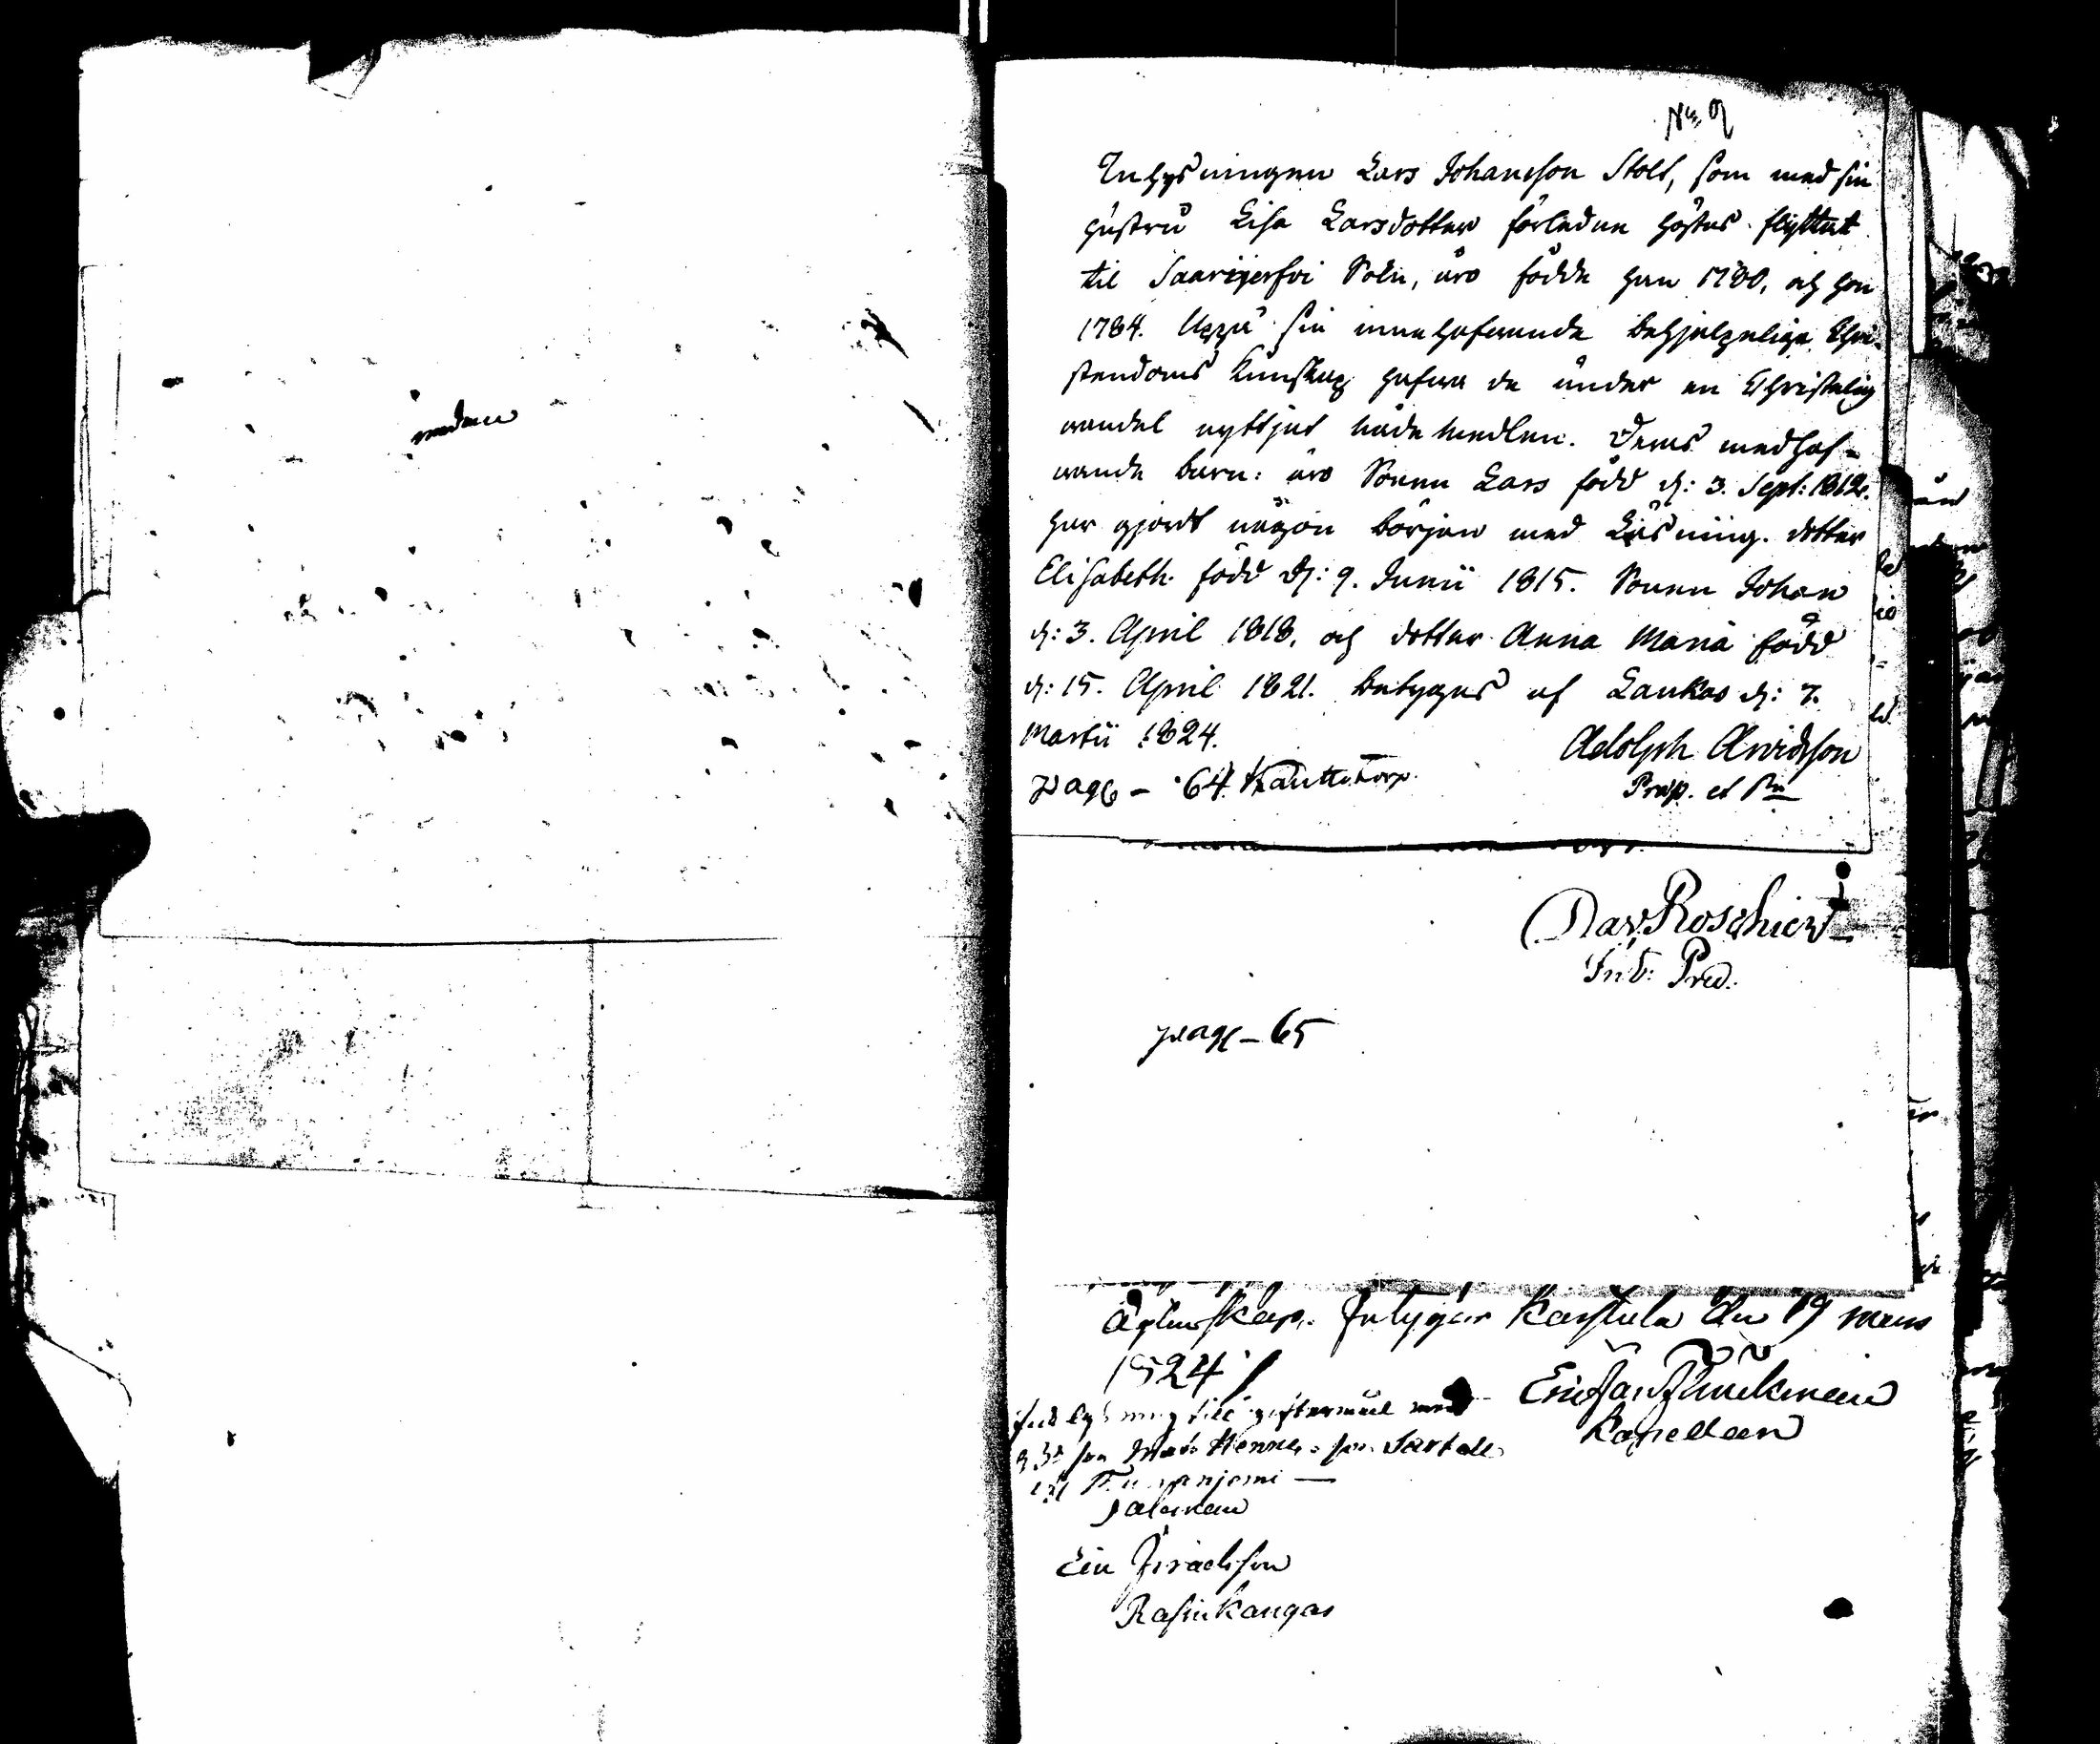 No 9
Inhysningen Lars Johansson Stolt, som med sin
hustru Lisa Larsdotter förleden höstas flyttat
til Saarijerfvi Sokn, äro födde han 1780, och hon
1784. Uppå sin innehafwande behjelpeliga Chri-
stendoms kunskap hafwa de under en Christelig
wandel nyttjat nådemedlen. Deras medhaf-
wande barn: äro Sonen Lars född d: 3. Sept: 1812.
har gjordt någon början med Läsning. dotter
Elisabeth född d: 9. Junii 1815. Sonen Johan
d: 3. April 1818, och dotter Anna Maria född
d: 15. April 1821. betygas af Laukas d: 7.
Martii 1824.
Adolph Arvidsson
Præp. et
pag - 64
Dav. Roschier
Pred.
pag - 65
ägtenskap. Intygar Karstula den 19 mars
1824
Kapellan
till giftermål med
son
Rasinkangas